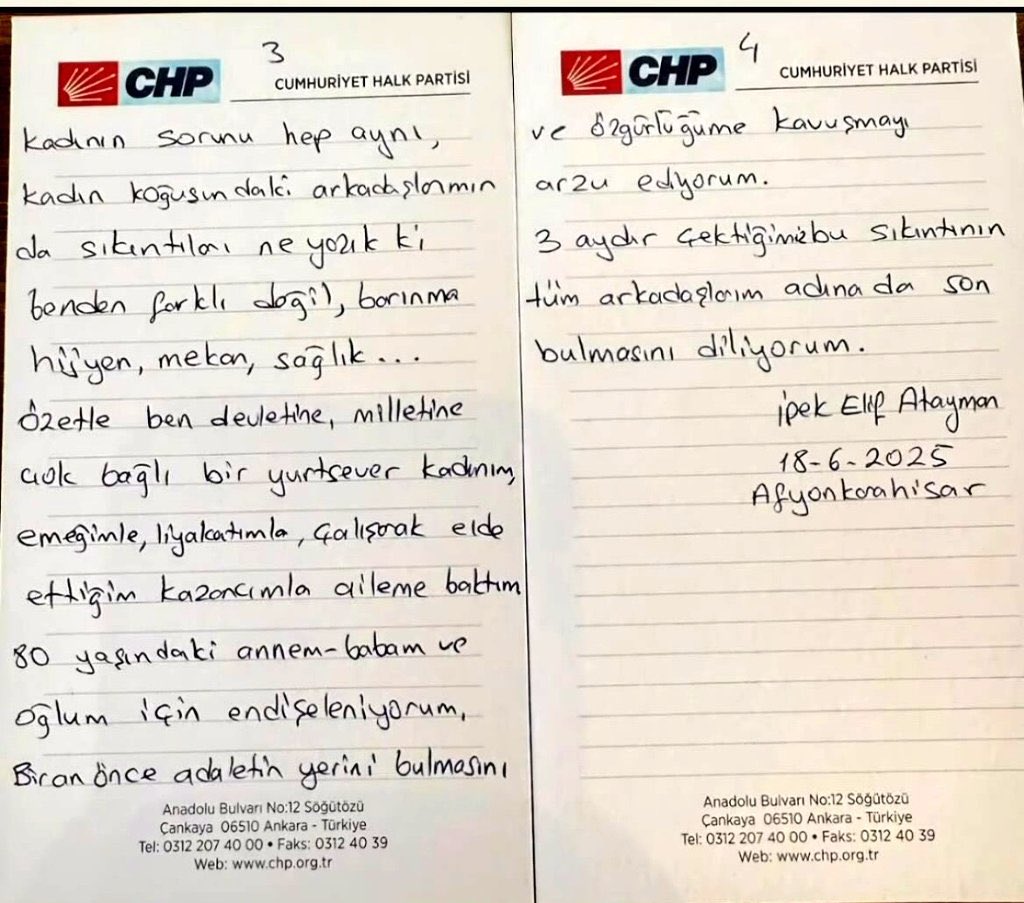 3
CHP
CUMHURİYET HALK PARTİSİ
kadının sorunu hep aynı,
kadın koğuşundaki arkadaşlarımın
da sıkıntıları ne yazık ki
benden farklı değil, barınma
hijyen, mekan, sağlık...
Özetle ben devletine, milletine
çok bağlı bir yurtsever kadınım,
emeğimle, liyakatımla, çalışarak elde
ettiğim kazancımla aileme baktım
80 yaşındaki annem-babam ve
oğlum için endişeleniyorum,
Bir an önce adaletin yerini bulmasını
Anadolu Bulvarı No:12 Söğütözü
Çankaya 06510 Ankara - Türkiye
Tel: 0312 207 40 00 • Faks: 0312 40 39
Web: www.chp.org.tr
4
CHP
CUMHURİYET HALK PARTİSİ
ve özgürlüğüme kavuşmayı
arzu ediyorum.
3 aydır çektiğimiz bu sıkıntının
tüm arkadaşlarım adına da son
bulmasını diliyorum.
İpek Elif Atayman
18-6-2025
Afyonkarahisar
Anadolu Bulvarı No:12 Söğütözü
Çankaya 06510 Ankara - Türkiye
Tel: 0312 207 40 00 • Faks: 0312 40 39
Web: www.chp.org.tr